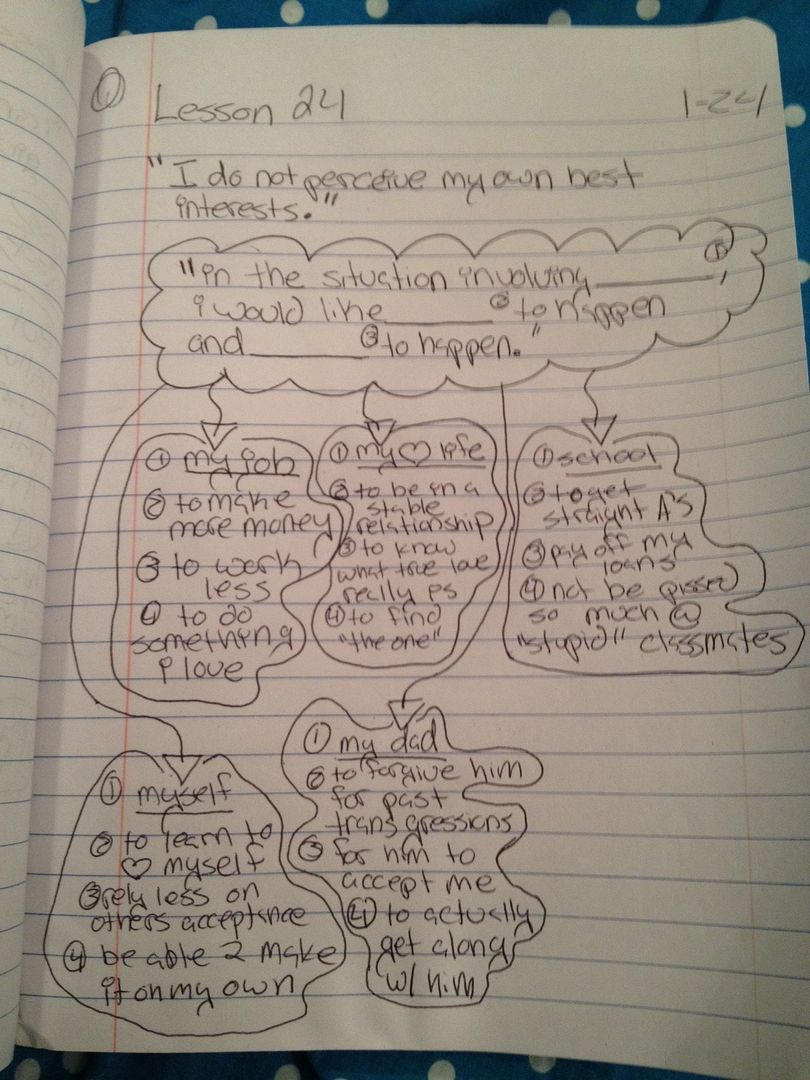 ① Lesson 24 1-24
"I do not perceive my own best
interests."
"in the situation involving ________①,
i would like ________② to happen
and ________③ to happen."
① my job
② to make
more money
③ to work
less
④ to do
something
i love
① my ♡ life
② to be in a
stable
relationship
③ to know
what true love
really is
④ to find
"the one"
① school
② to get
straight A's
③ pay off my
loans
④ not be pissed
so much @
"stupid" classmates
① myself
② to learn to
♡ myself
③ rely less on
others acceptance
④ be able 2 make
it on my own
① my dad
② to forgive him
for past
transgressions
③ for him to
accept me
④ to actually
get along
w/ him